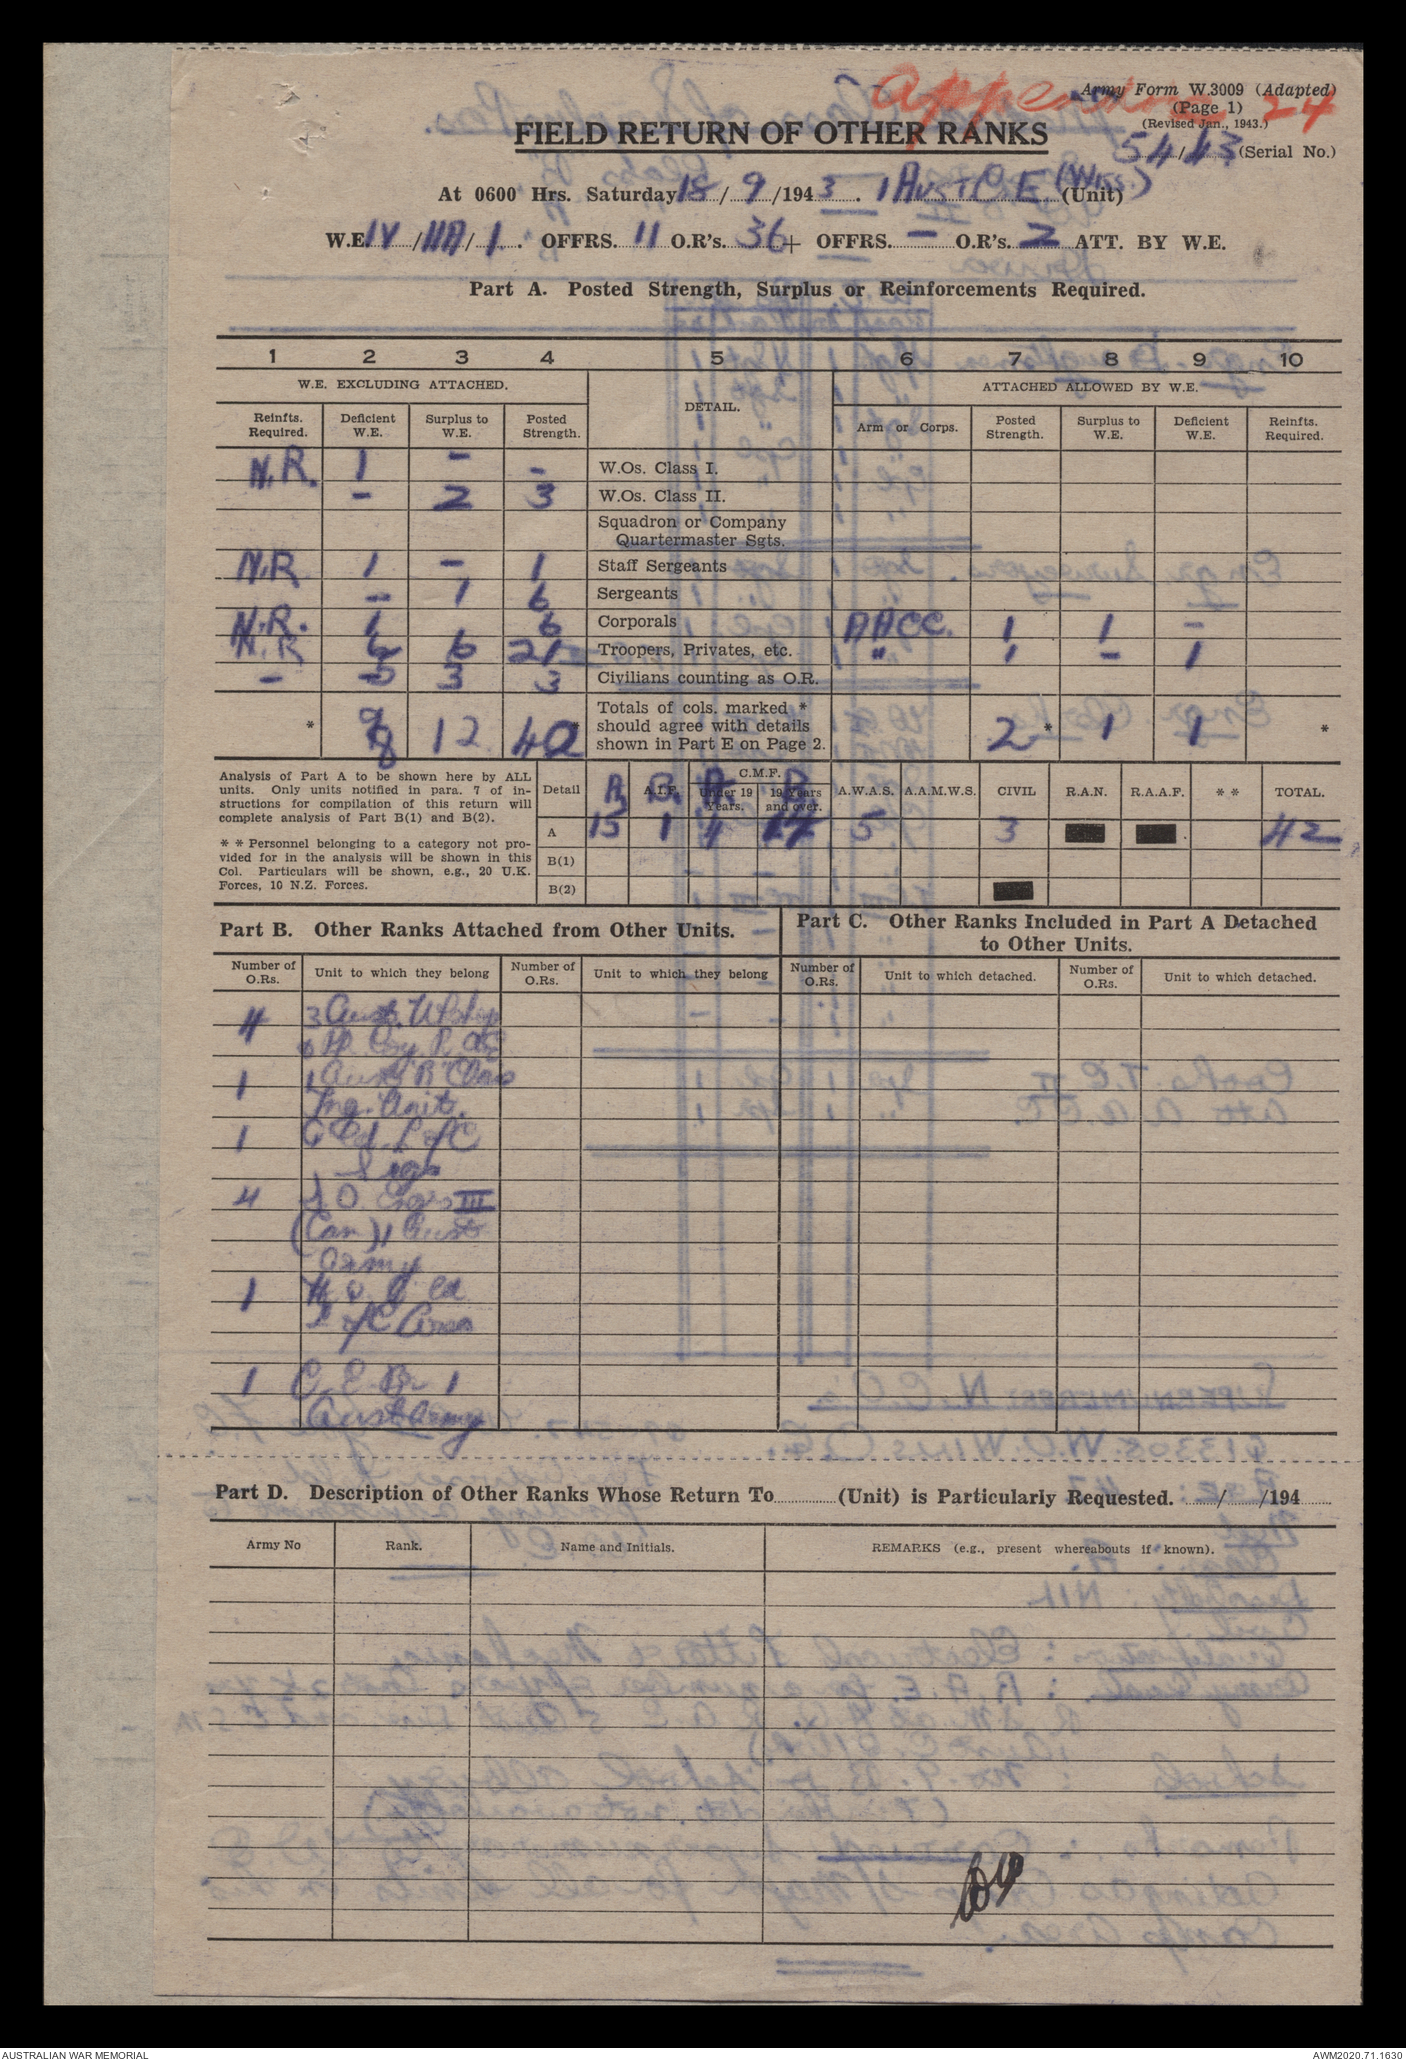 Appendix 24
Army Form W.3009 (Adapted)
(Page 1)
(Revised Jan., 1943.)
FIELD RETURN OF OTHER RANKS
54/43 (Serial No.)
At 0600 Hrs. Saturday 18/9/1943. 1 Aust C E (Wks.) (Unit)
W.E. IV/11A/1. OFFRS. 11 O.R's. 36 + OFFRS. - O.R's. 2 ATT. BY W.E.
Part A. Posted Strength, Surplus or Reinforcements Required.
1 2 3 4 5 6 7 8 9 10
W.E. EXCLUDING ATTACHED. DETAIL. ATTACHED ALLOWED BY W.E.
Reinfts. Required. Deficient W.E. Surplus to W.E. Posted Strength. Arm or Corps. Posted Strength. Surplus to W.E. Deficient W.E. Reinfts. Required.
N.R. 1 - - W.Os. Class I.
- 2 3 W.Os. Class II.
Squadron or Company
Quartermaster Sgts.
N.R. 1 - 1 Staff Sergeants
- 1 6 Sergeants
N.R. 1 6 Corporals AACC. 1 1 -
N.R. 6 21 Troopers, Privates, etc. " 1 - 1
- 3 3 Civilians counting as O.R.
Totals of cols. marked *
should agree with details
shown in Part E on Page 2.
* 8 12 40 * 2 * 1 1 *
Analysis of Part A to be shown here by ALL
units. Only units notified in para. 7 of in-
structions for compilation of this return will
complete analysis of Part B(1) and B(2).
* * Personnel belonging to a category not pro-
vided for in the analysis will be shown in this
Col. Particulars will be shown, e.g., 20 U.K.
Forces, 10 N.Z. Forces.
C.M.F.
Detail A B A.I.F. A Under 19 Years. B 19 Years and over. A.W.A.S. A.A.M.W.S. CIVIL R.A.N. R.A.A.F. * * TOTAL.
A 15 1 4 5 3 42
B(1) - -
B(2)
Part B. Other Ranks Attached from Other Units.
Part C. Other Ranks Included in Part A Detached
to Other Units.
Number of O.Rs. Unit to which they belong Number of O.Rs. Unit to which they belong Number of O.Rs. Unit to which detached. Number of O.Rs. Unit to which detached.
4 3 Aust. Wkshop
& Pk Coy. R A E
1 1 Aust "B" Class
Tng. Units.
1 Qld. L of C
Sigs
4 D O Engrs III
(Can) 1 Aust
Army
1 H Q Q'ld
L of C Area
1 C. E. Br. 1
Aust Army
Part D. Description of Other Ranks Whose Return To............(Unit) is Particularly Requested. ....../....../194......
Army No Rank. Name and Initials. REMARKS (e.g., present whereabouts if known).
AUSTRALIAN WAR MEMORIAL
AWM2020.71.1630